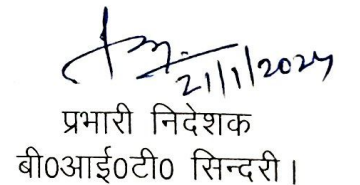 21/1/2025
प्रभारी निदेशक
बी०आई०टी० सिन्दरी।